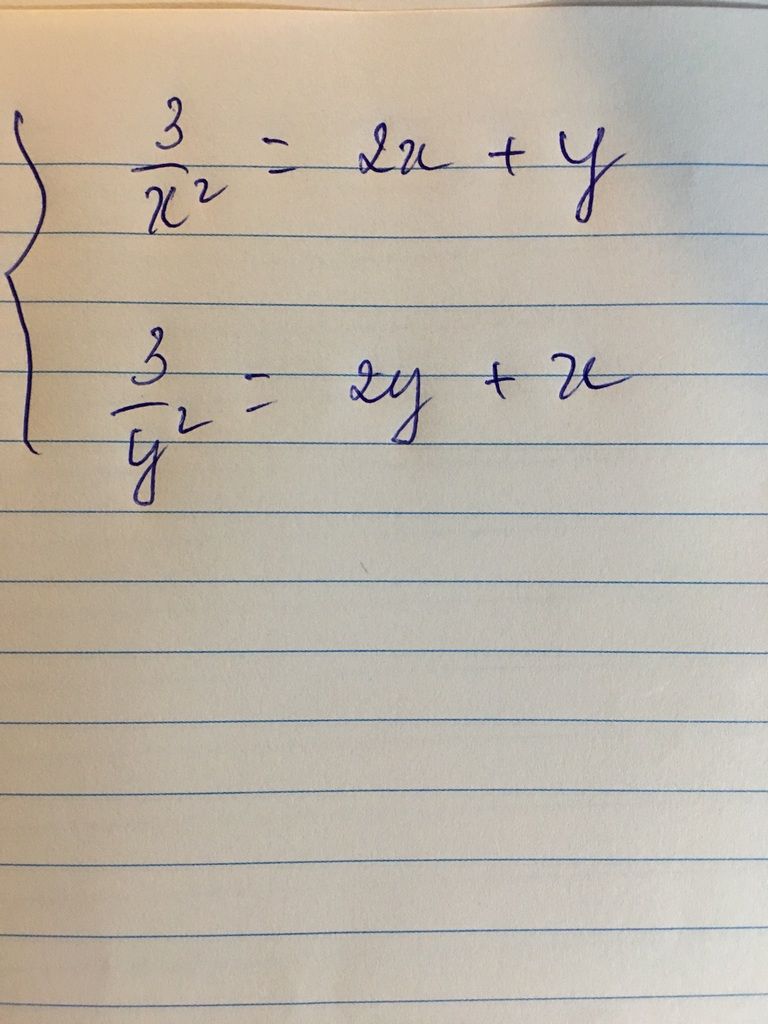 3/x² = 2x + y
3/y² = 2y + x